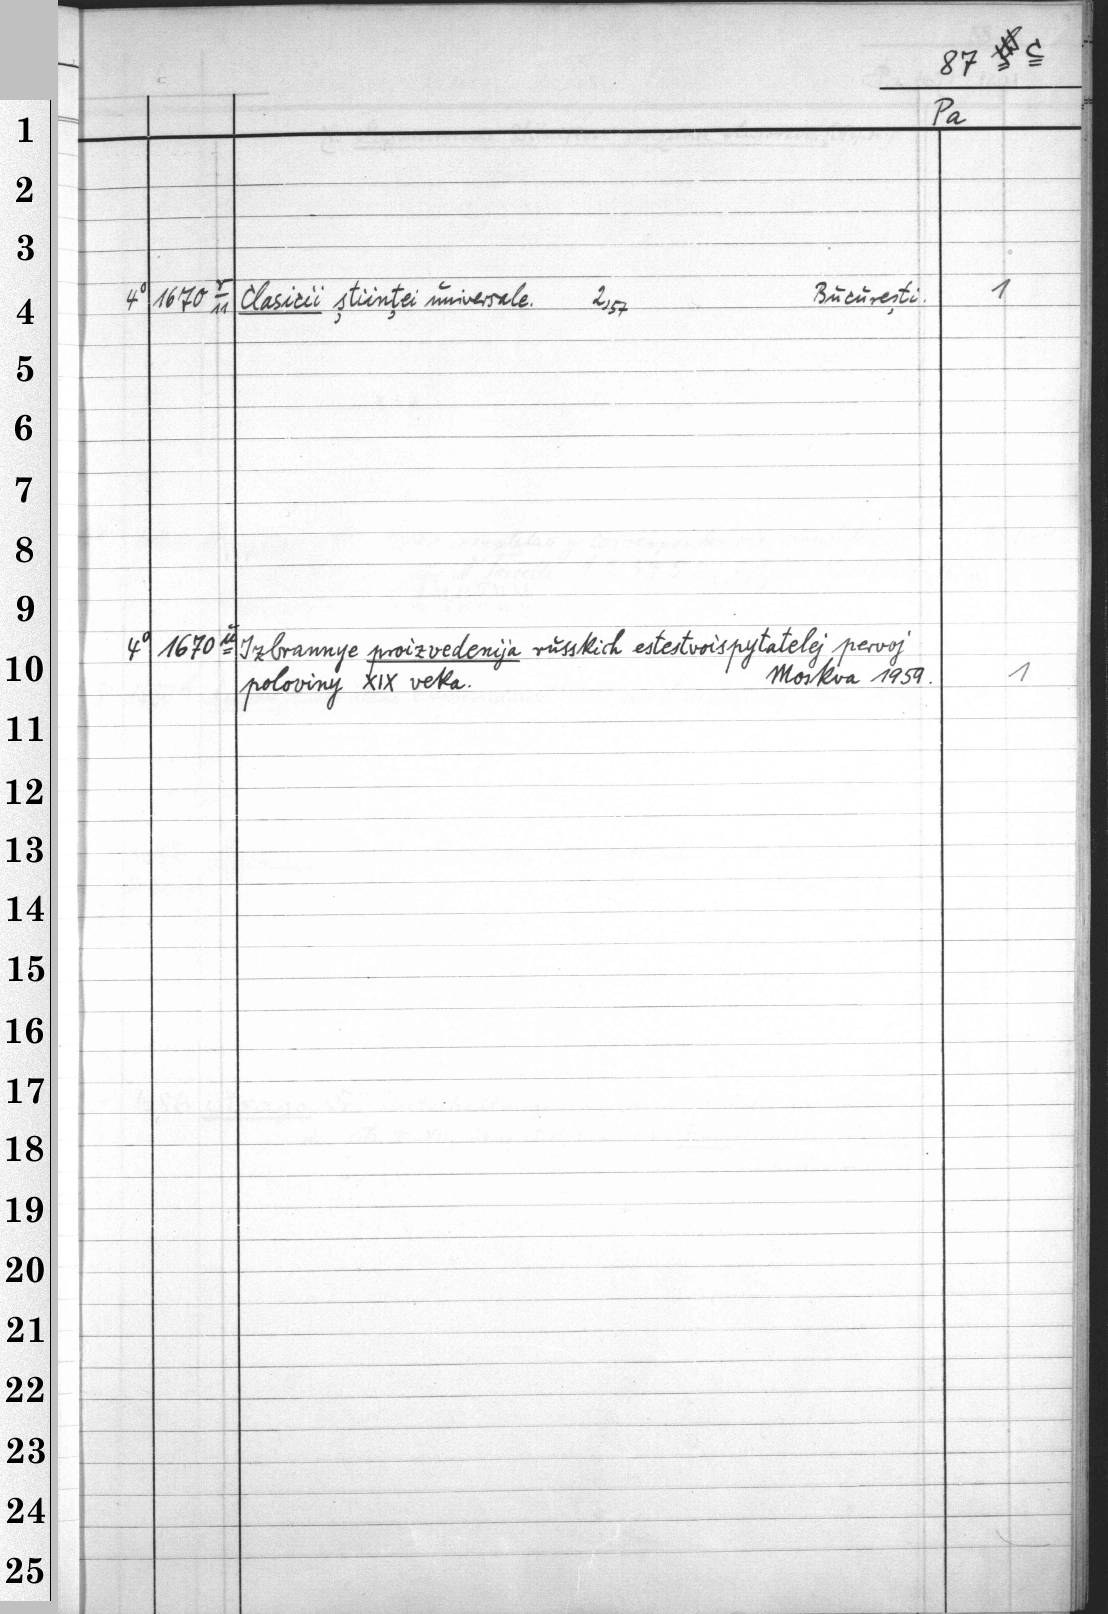 87 c
Pa
1
2
3
4° 1670 r/11 Clasicii ştiinţei universale. 2,57 Bucureşti. 1
4
5
6
7
8
9
4° 1670 Izbrannye proizvedenija russkich estestvoispytatelej pervoj
10 poloviny XIX veka. Moskva 1959. 1
11
12
13
14
15
16
17
18
19
20
21
22
23
24
25